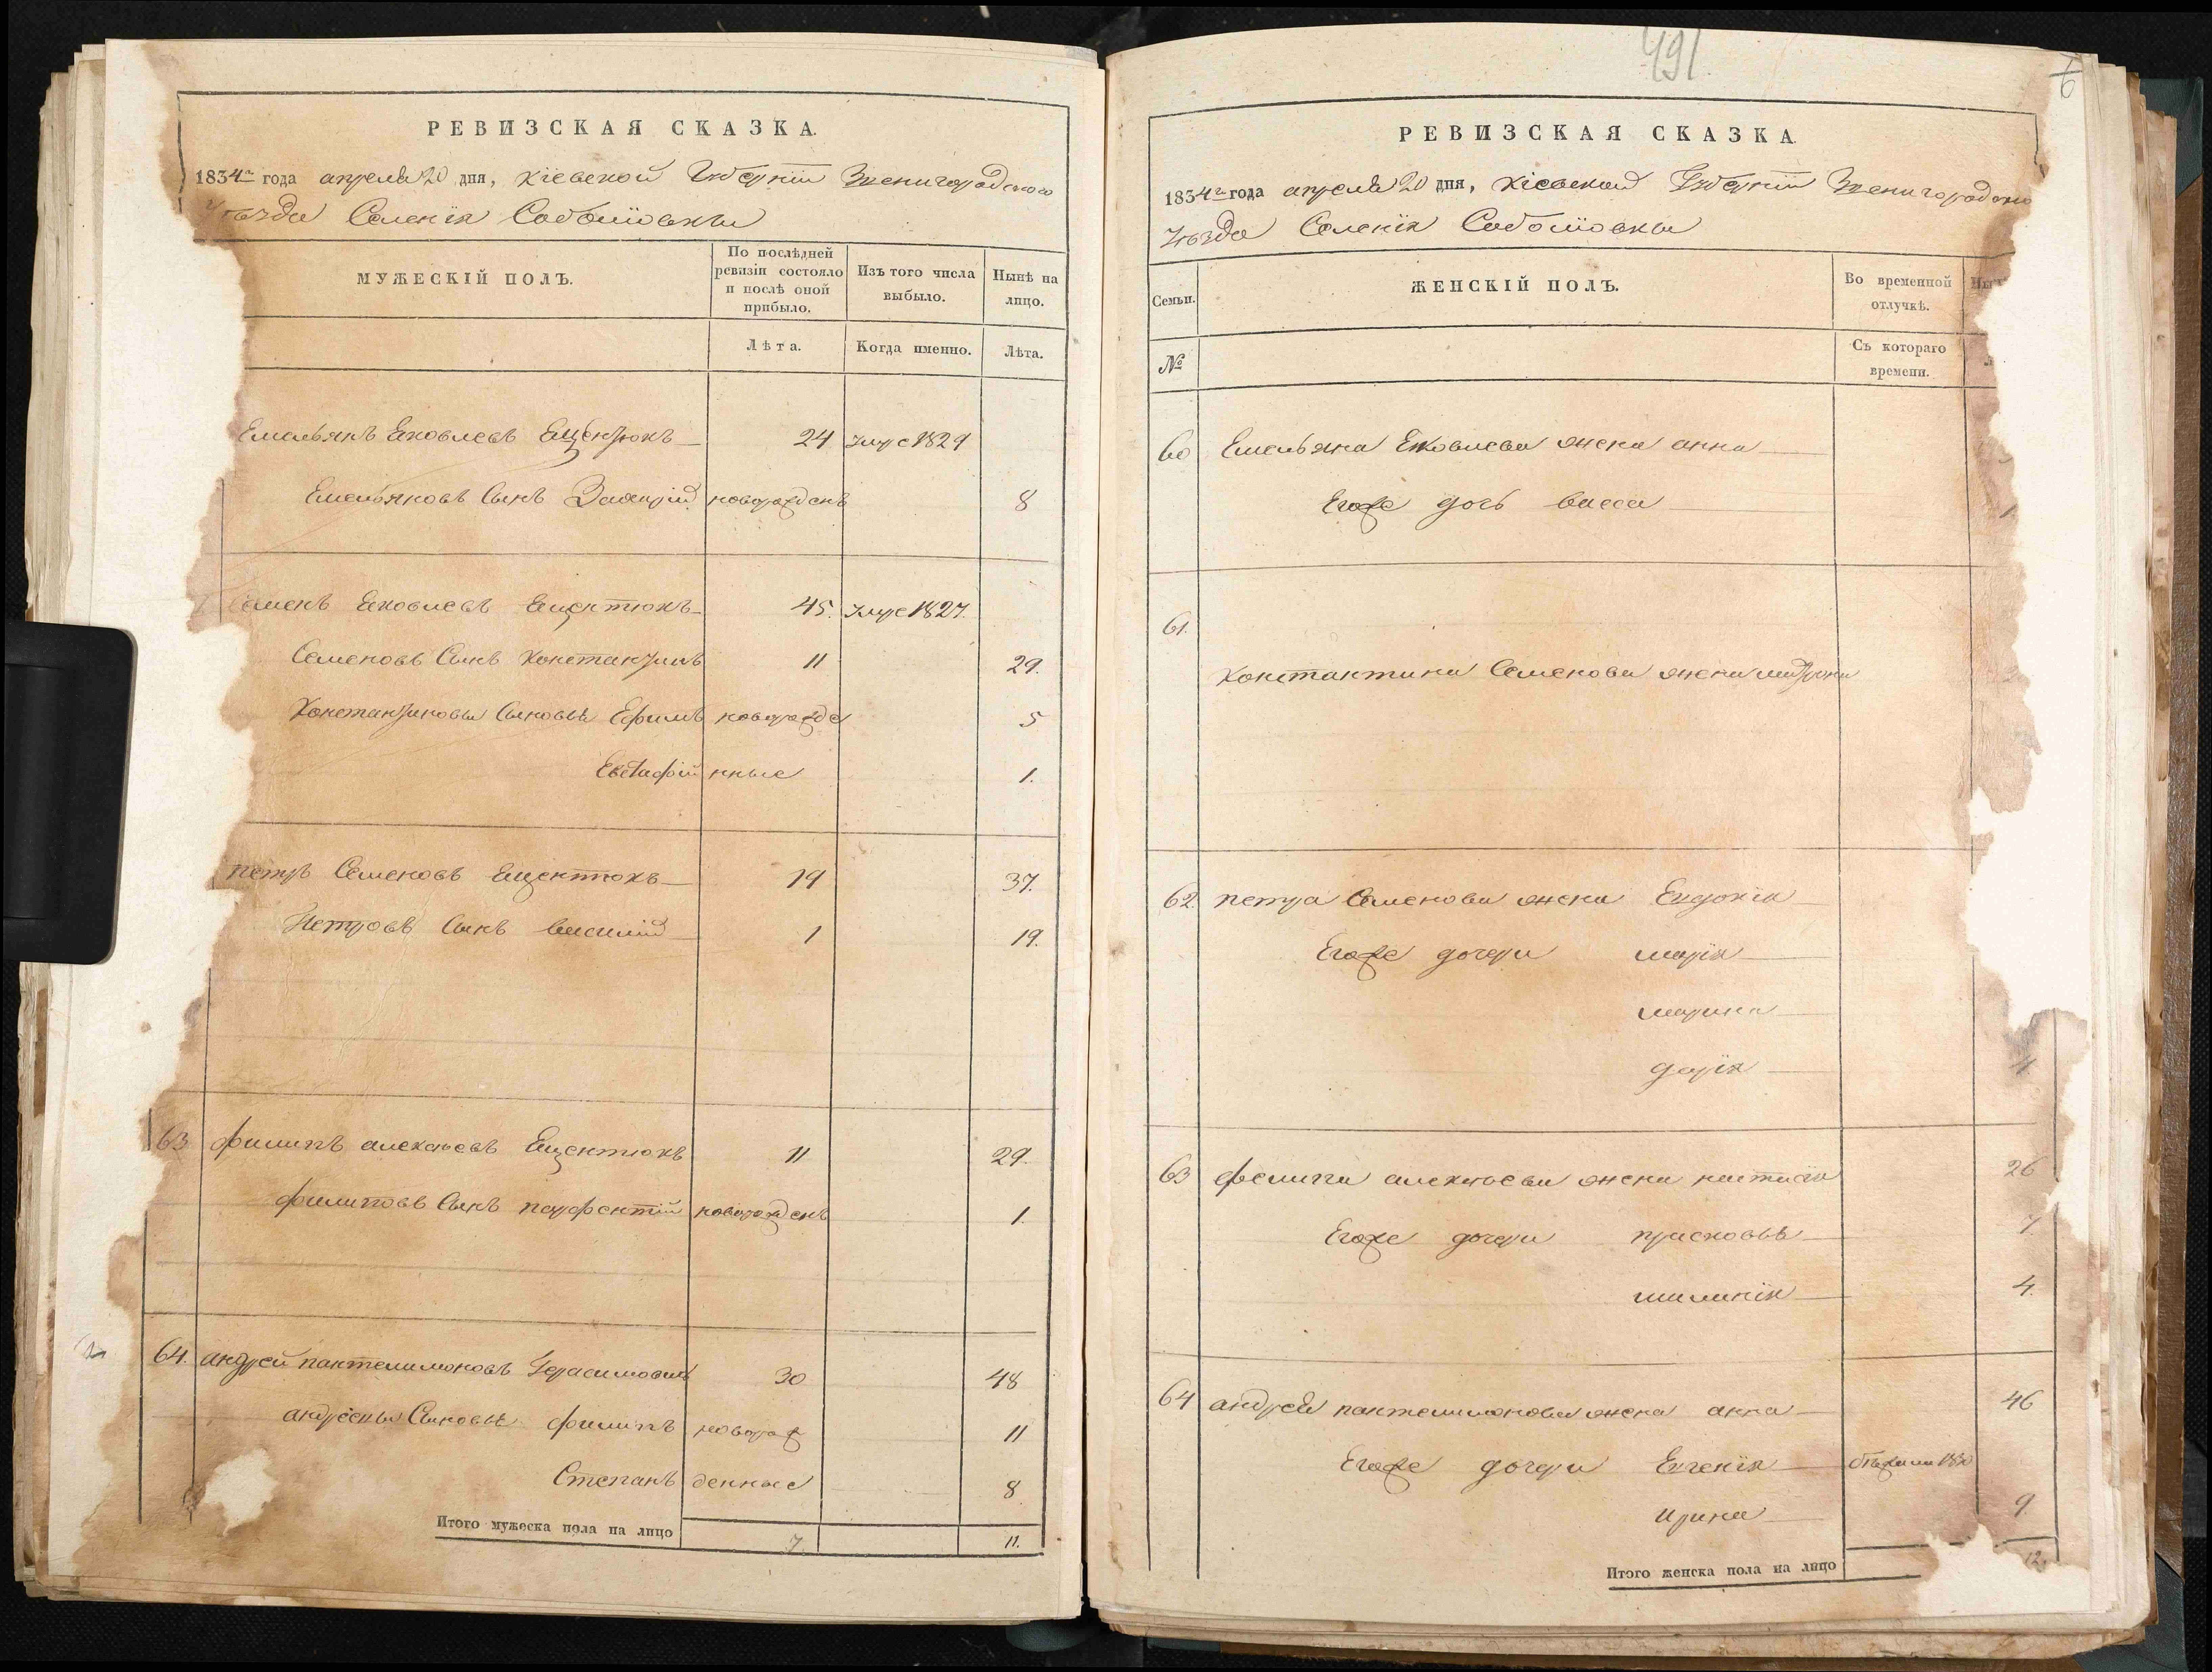 РЕВИЗСКАЯ СКАЗКА.
1834го года апреля 20 дня, Кіевской Губерніи Звенигородского
уѣзда Селенія Соболиовки
МУЖЕСКІЙ ПОЛЪ.
По послѣдней ревизіи состояло и послѣ оной прибыло.
Изъ того числа выбыло.
Нынѣ на лицо.
Лѣта.
Когда именно.
Лѣта.
Емельянъ Яковлевъ Ященюкъ 24 умре 1829
Емельяновъ Сынъ новорожденъ 8
Семенъ Яковлевъ Ящентюкъ 45. умре 1827.
Семеновъ Сынъ Константинъ 11 29.
Константиновы Сыновья Ефимъ новорожде 5
Евстафій нные 1.
петръ Семеновъ Ящентюкъ 19 37.
Петровъ Сынъ василій 1 19.
63 филипъ алексѣевъ Ящентюкъ 11 29.
филиповъ Сынъ парфентій новорожденъ 1.
64. андрей пантелимоновъ Герасимовичъ 30 48
андреевы Сыновья филипъ новорож 11
Степанъ денные 8
Итого мужеска пола на лицо 7. 11.
491
6
РЕВИЗСКАЯ СКАЗКА.
1834го года апреля 20 дня, Кіевской Губерніи Звенигородско
уѣзда Селенія Соболиовки
Семьи.
ЖЕНСКІЙ ПОЛЪ.
Во временной отлучкѣ.
№
Съ котораго времени.
60 Емельяна Яковлева жена анна
Егоже дочь васса
61.
Константина Семенова жена мадрона
62. петра Семенова жена Евдокія
Егоже дочери марія
марина
дарія 4
63 филипа алексѣева жена настасія 26
Егоже дочери прасковья 7
милинія 4.
64 андрея пантелимонова жена анна 46
Егоже дочери Евгенія
ирина 9
Итого женска пола на лицо 12.